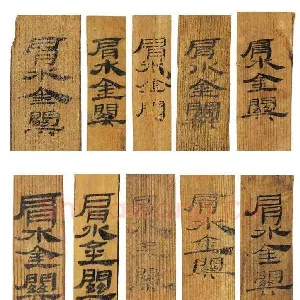 肩水金關
肩水金關
肩水金關
肩水金關
肩水金關
肩水金關
肩水金關
肩水金關
肩水金關